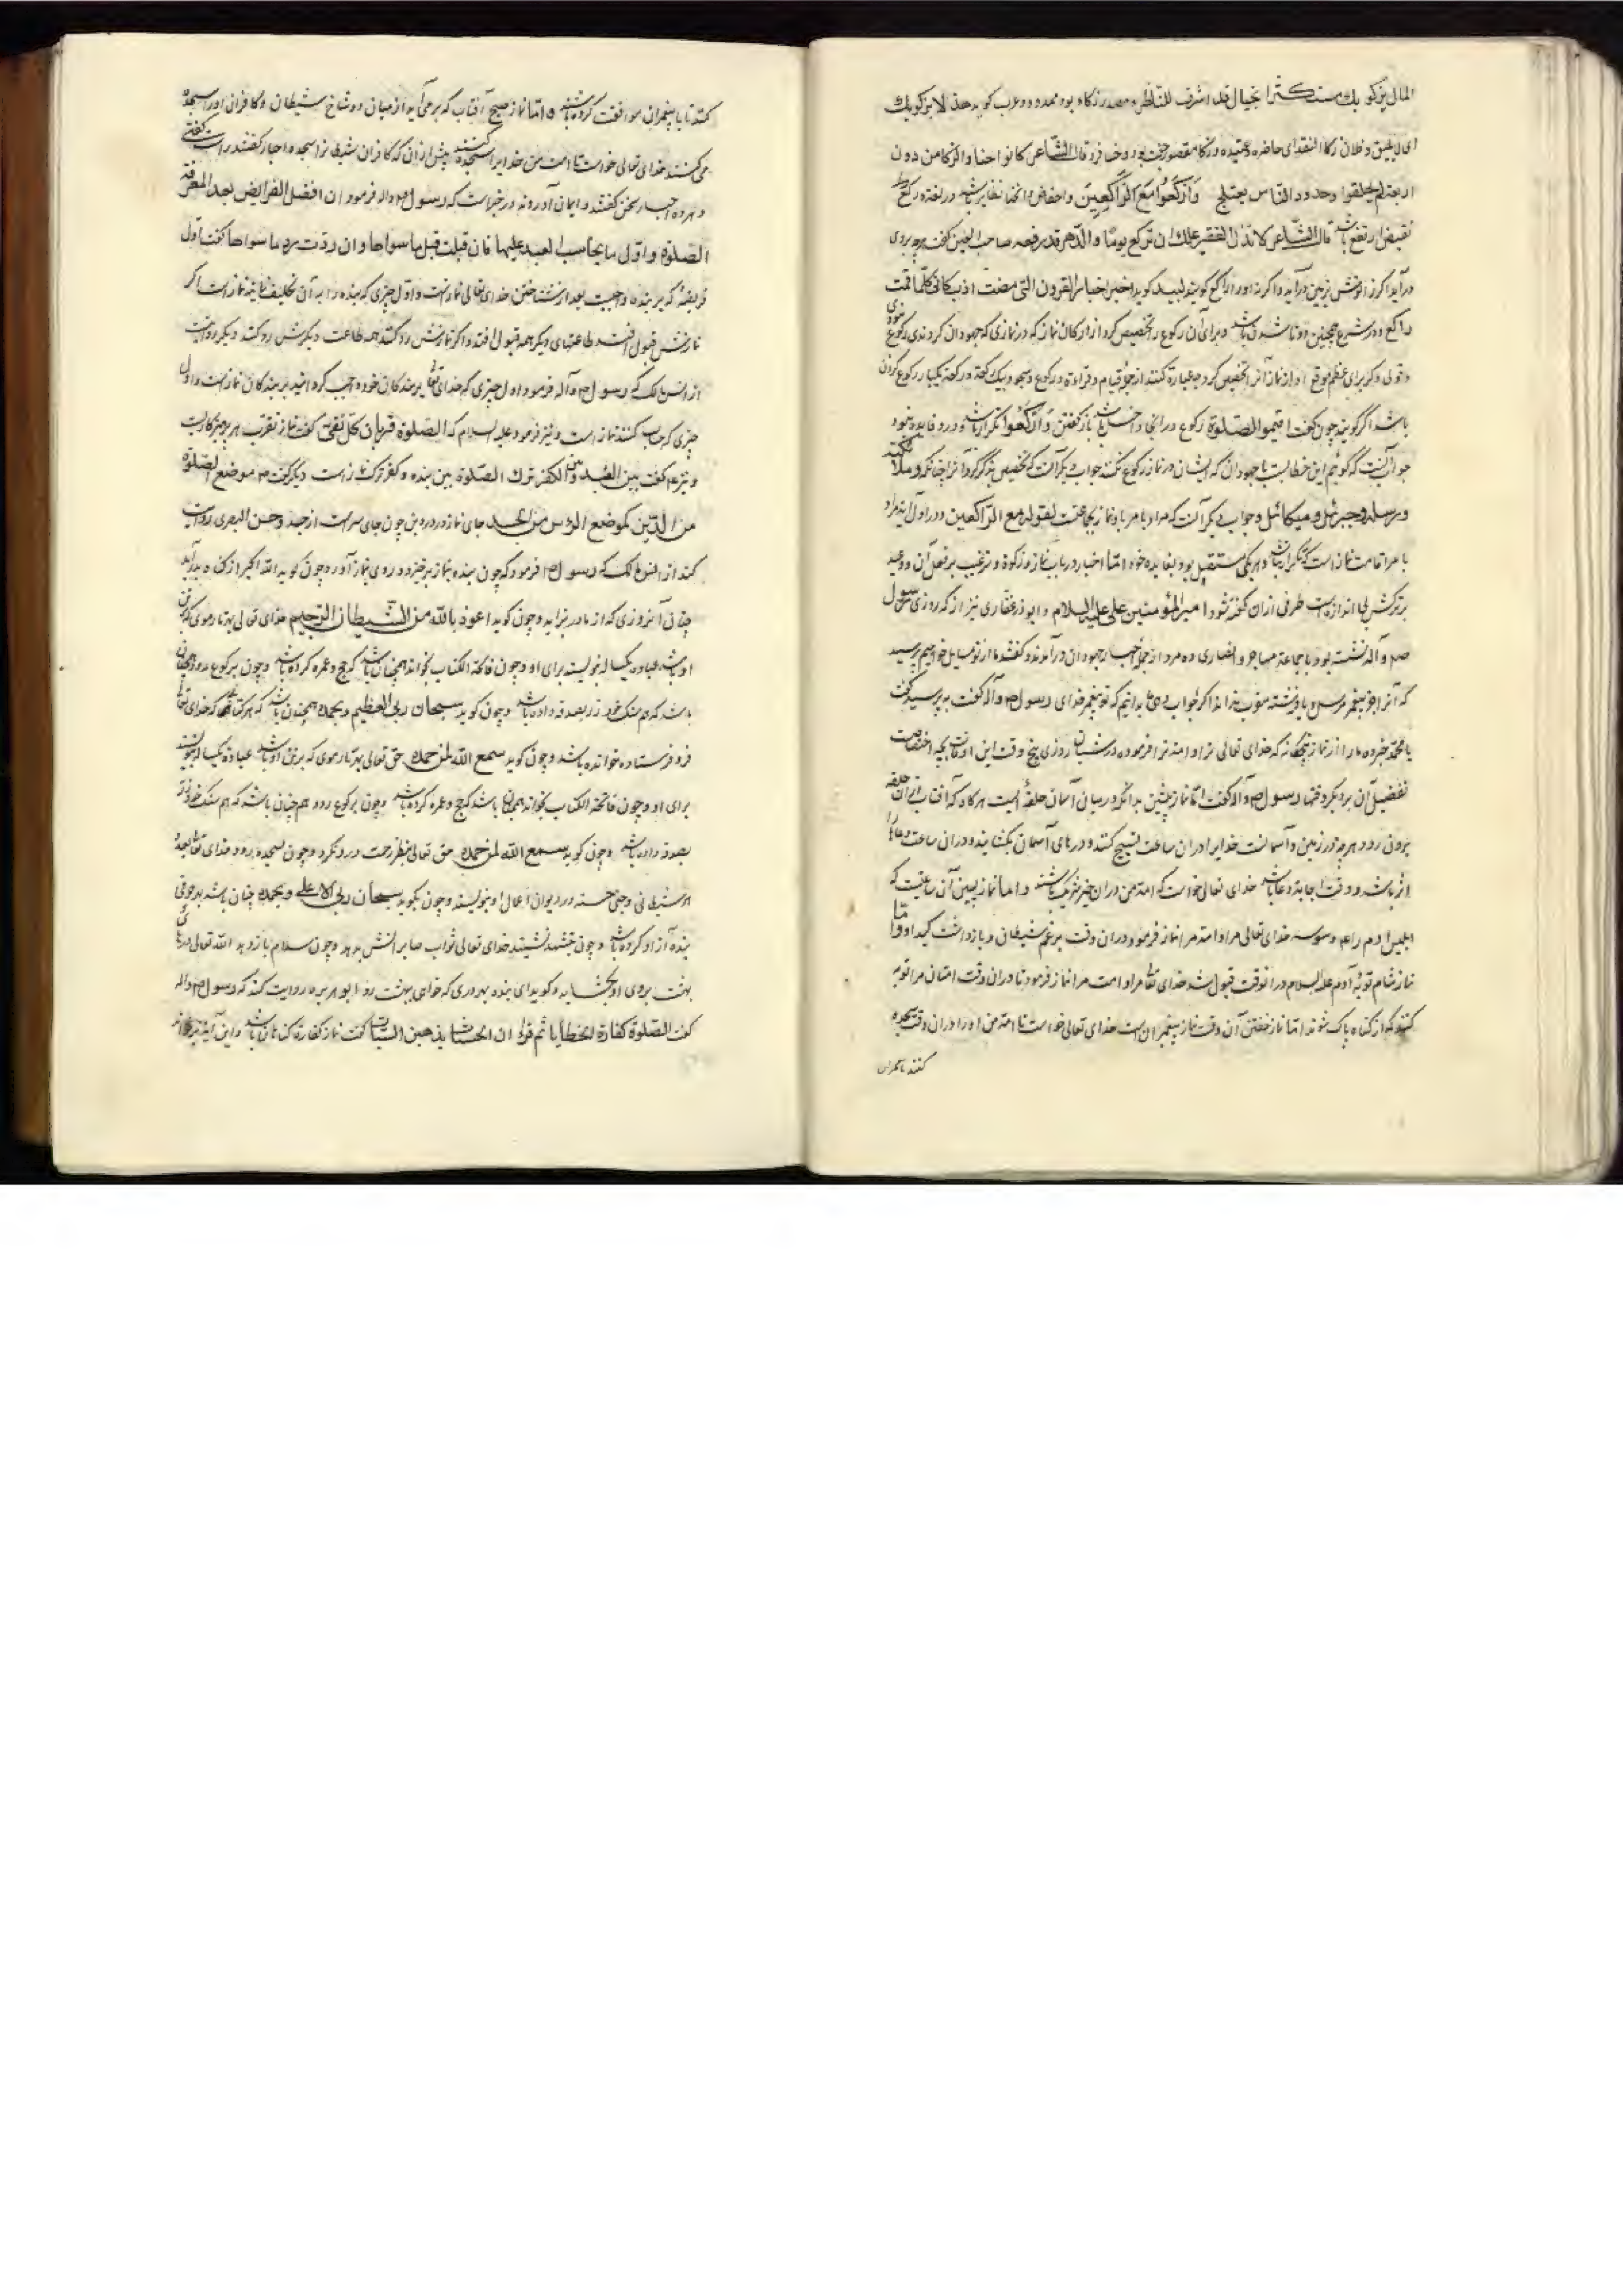 المال یزکو بك مستکثرا بجبال قد اشرف للناظر و مصدر زکاء بود ممدود و عرب کوید هذا لا یزکو بك
ای لا یلیق و فلان زکا النقد ای حاضره و عتیده و زکا مقصور جفت بود و خسا فرد قال الشاعر کانوا خسا و الزکا من دون
اربعة لم یخلقوا و جدود الناس یعتلج وَارْکَعُوا مَعَ الرَّاکِعِینَ و انخفاض و انحنا نظایر باشد در لغة رکع
نقیض ارتفع باشد قال الشاعر کا تذل الفقیر علك ان ترکع یوما و الدهر قد رفعه صاحب العین کفت هرچه بروی
درآید اکر زانوش بزمین درآید و اکر نه او را راکع کویند لبید کوید اخبر اخبار القرون التی مضت ادب کانی کلما قمت
راکع و در شرع همچنین دوتا شدن باشد و برای آن رکوع را تخصیص کرد از ارکان نماز که در نمازی که جهودان کردندی رکوع نبودی
و قولی دکر برای عظم موقع او از نماز آنرا تخصیص کرد چه عبارة کنند از جزء قیام و قراءة و رکوع و سجود بیك رکعة و رکعة یکبار رکوع کردن
باشد اکر کویند چون کفت اقیموا الصلوة رکوع در انجا داخل باشد باز کفتن وَارْکَعُوا تکرار باشد و درو فایده نبود
جواب آنست که کوئیم این خطابست با جهودان که ایشان در نماز رکوع نکنند جواب دیکر آنست که تخصیص بذکر کرد آنرا چنانکه و ملائکته
و رسله و جبرئیل و میکائیل و جواب دیکر آنست که مراد بامر با نماز جماعتست لقوله مع الراکعین و در اول آیه مراد
بامر اقامت نماز است تکرار نباشد و هر یکی مستقل بود بفایده خود امّا اخبار در باب نماز و زکوة و ترغیب بر فعل آن و وعید
بر ترکش بی اندازه است طرفی ازان کفته شود امیر المؤمنین علی علیه السلام و ابو ذر غفاری نیز از که روزی رسول
صم و آله نشسته بود با جماعتی مهاجر و انصاری ده مرد از جمله احبار جهودان درآمدند و کفتند ما از تو مسایلی خواهیم پرسید
که آنرا جز پیغمبر مرسل و یا فرشته مقرب نداند اکر جواب دهی ما بدانیم که تو پیغمبر خدای رسول ص و آله کفت بپرسید کفت
یا محمد خبر ده ما را از نماز پنجکانه که خدای تعالی ترا و امة ترا فرموده در شبان روزی پنج وقت این اوقات بچه اختصاصست
تفضیل آن بر دیکر وقتها رسول ص و آله کفت امّا نماز پیشین بدانکه در میان آسمان حلقه ایست هرکاه که آفتاب از آن حلقه
بیرون رود هرچه در زمین و آسمانست خدای را دران ساعت تسبیح کنند و درهای آسمان بکشایند و دران ساعت دعا را
اثر باشد و وقت اجابة دعا باشد خدای تعالی خواست که امة من دران خیر شریک باشند و اما نماز پسین آن ساعتست که
ابلیس آدم را بوسوسه خدای تعالی مرا و امة مرا نماز فرمود دران وقت برغم شیطان و بازداشت کید او و امّا
نماز شام توبۀ آدم علیه السلام دران وقت قبول شد خدای تعالی مرا و امت مرا نماز فرمود تا دران وقت امتان مرا توبه
کنند که از کناه پاک شوند امّا نماز خفتن آن وقت نماز پیغمبران است خدای تعالی خواست تا امة من او را دران وقت سجده
کنند تا با پیغمبران
کنند تا با پیغمبران موافقت کرده باشند و امّا نماز صبح آفتاب که برمی آید از میان دو شاخ شیطان و کافران او را سجده
می کنند خدای تعالی خواست تا امت من خدای را سجده کنند پیش ازان که کافران شیطانرا سجده احبار کفتند راست کفتی
و هر ده احبار سخن کفتند و ایمان آوردند در خبر است که رسول ص و اله فرمود ان افضل الفرائض بعد المعرفة
الصلوة و اوّل ما یحاسب العبد علیها فان قبلت قبل ما سواها و ان ردّت رد ما سواها کفت اول
فریضۀ که بر بنده واجبست بعد از شناختن خدای تعالی نماز است و اول چیزی که بنده را به آن تکلیف نمایند نماز است اکر
نمازش قبول افتد طاعتهای دیکر همه قبول افتد و اکر نمازش رد کنند همه طاعت دیکرش رد کنند دیکر روایتست
از انس مالک که رسول ص و آله فرمود اول چیزی که خدای تعالی بر بندکان خود واجب کردانید بر بندکان نماز است و اول
چیزی که حساب کنند نماز است و نیز فرمود علیه السلام که الصلوة قربان کلّ تقیّ کفت نماز تقرب هر پرهیزکاریست
و نیز هم کفت بین العبد و بین الکفر ترك الصلوة بین بنده و کفر ترک نماز است دیکر کفت ص موضع الصلوة
من الدّین کموضع الرّأس من الجسد جای نماز در دین چون جای سر است از جسد و حسن البصری روایت
کند از انس مالک که رسول ص فرمود که چون بنده بنماز برخیزد و روی بنماز آورد چون کوید الله اکبر از کناه بدر آید
چنان آنروزی که از مادر بزاید و چون کوید اعوذ بالله من الشیطان الرّجیم خدای تعالی بهر تار موی که بر تن
او باشد عبادت یکساله بنویسد برای او و چون فاتحة الکتاب بخواند همچنان باشد که حج و عمره کرده باشد و چون برکوع رود همچنان
باشد که هم سنک خود زر بصدقه داده باشد و چون کوید سبحان ربی العظیم و بحمده همچنان باشد که هر کتابی که خدای تعالی
فرو فرستاده خوانده باشد و چون کوید سمع الله لمن حمده حق تعالی بهر تار موی که بر تن او باشد عبادة یکساله بنویسد
برای او و چون فاتحة الکتاب بخواند همچنان باشد که حج و عمره کرده باشد و چون برکوع رود هم چنان باشد که هم سنک خود زر
بصدقه داده باشد و چون کوید سمع الله لمن حمده حق تعالی بنظر رحمت درو نکرد و چون بسجده رود خدای تعالی بعدد
هر شیطانی و جنی حسنه در دیوان اعمال او بنویسد و چون بکوید سبحان ربی الاعلی و بحمده چنان باشد بهر حرفی
بنده آزاد کرده باشد و چون بتشهد نشیند خدای تعالی ثواب صابرانش بدهد و چون سلام باز دهد الله تعالی درهای
بهشت بروی او بکشاید و کوید ای بنده بهر دری که خواهی بهشت رو ابو هریره روایت کند که رسول ص و اله
کفت الصّلوة کفارة الخطایا ثم قرا ان الحسنات یذهبن السیّات کفت نماز کفارة کناهان باشد و این آیه برخواند